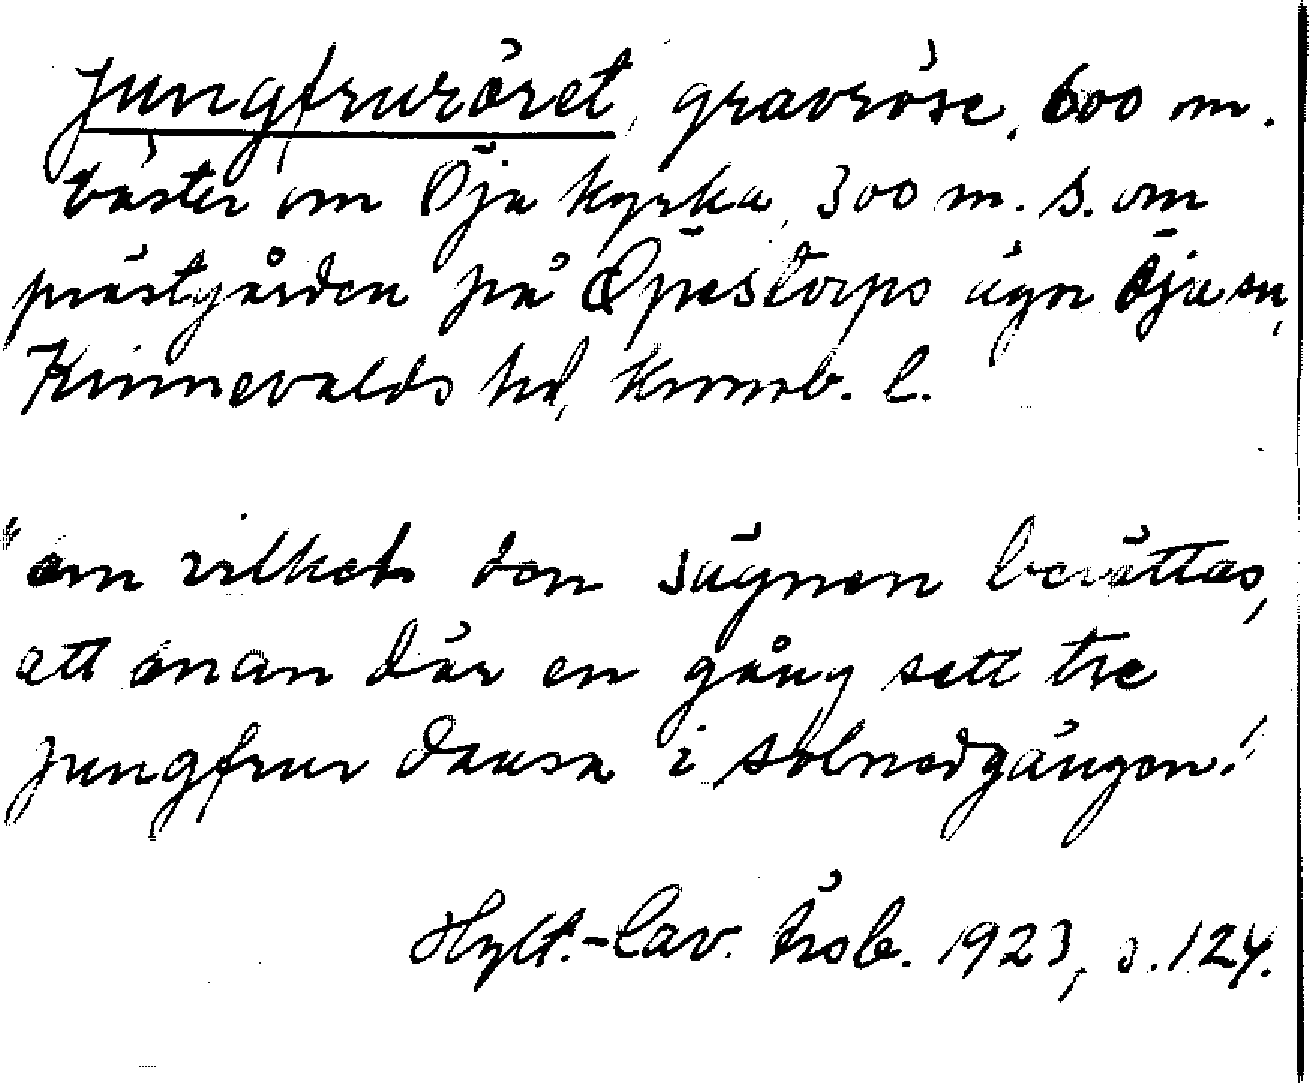 Jungfruröret, gravröse, 600 m.
väster om Öja kyrka, 300 m. s. om
prästgården på Öjestorps ägor Öja sn,
Kinnevalds hd, Kronob. l.
"om vilket den sägnen berättas,
att man där en gång sett tre
jungfrur dansa i solnedgången."
Hylt.-Cav. årsb. 1923, s. 124.